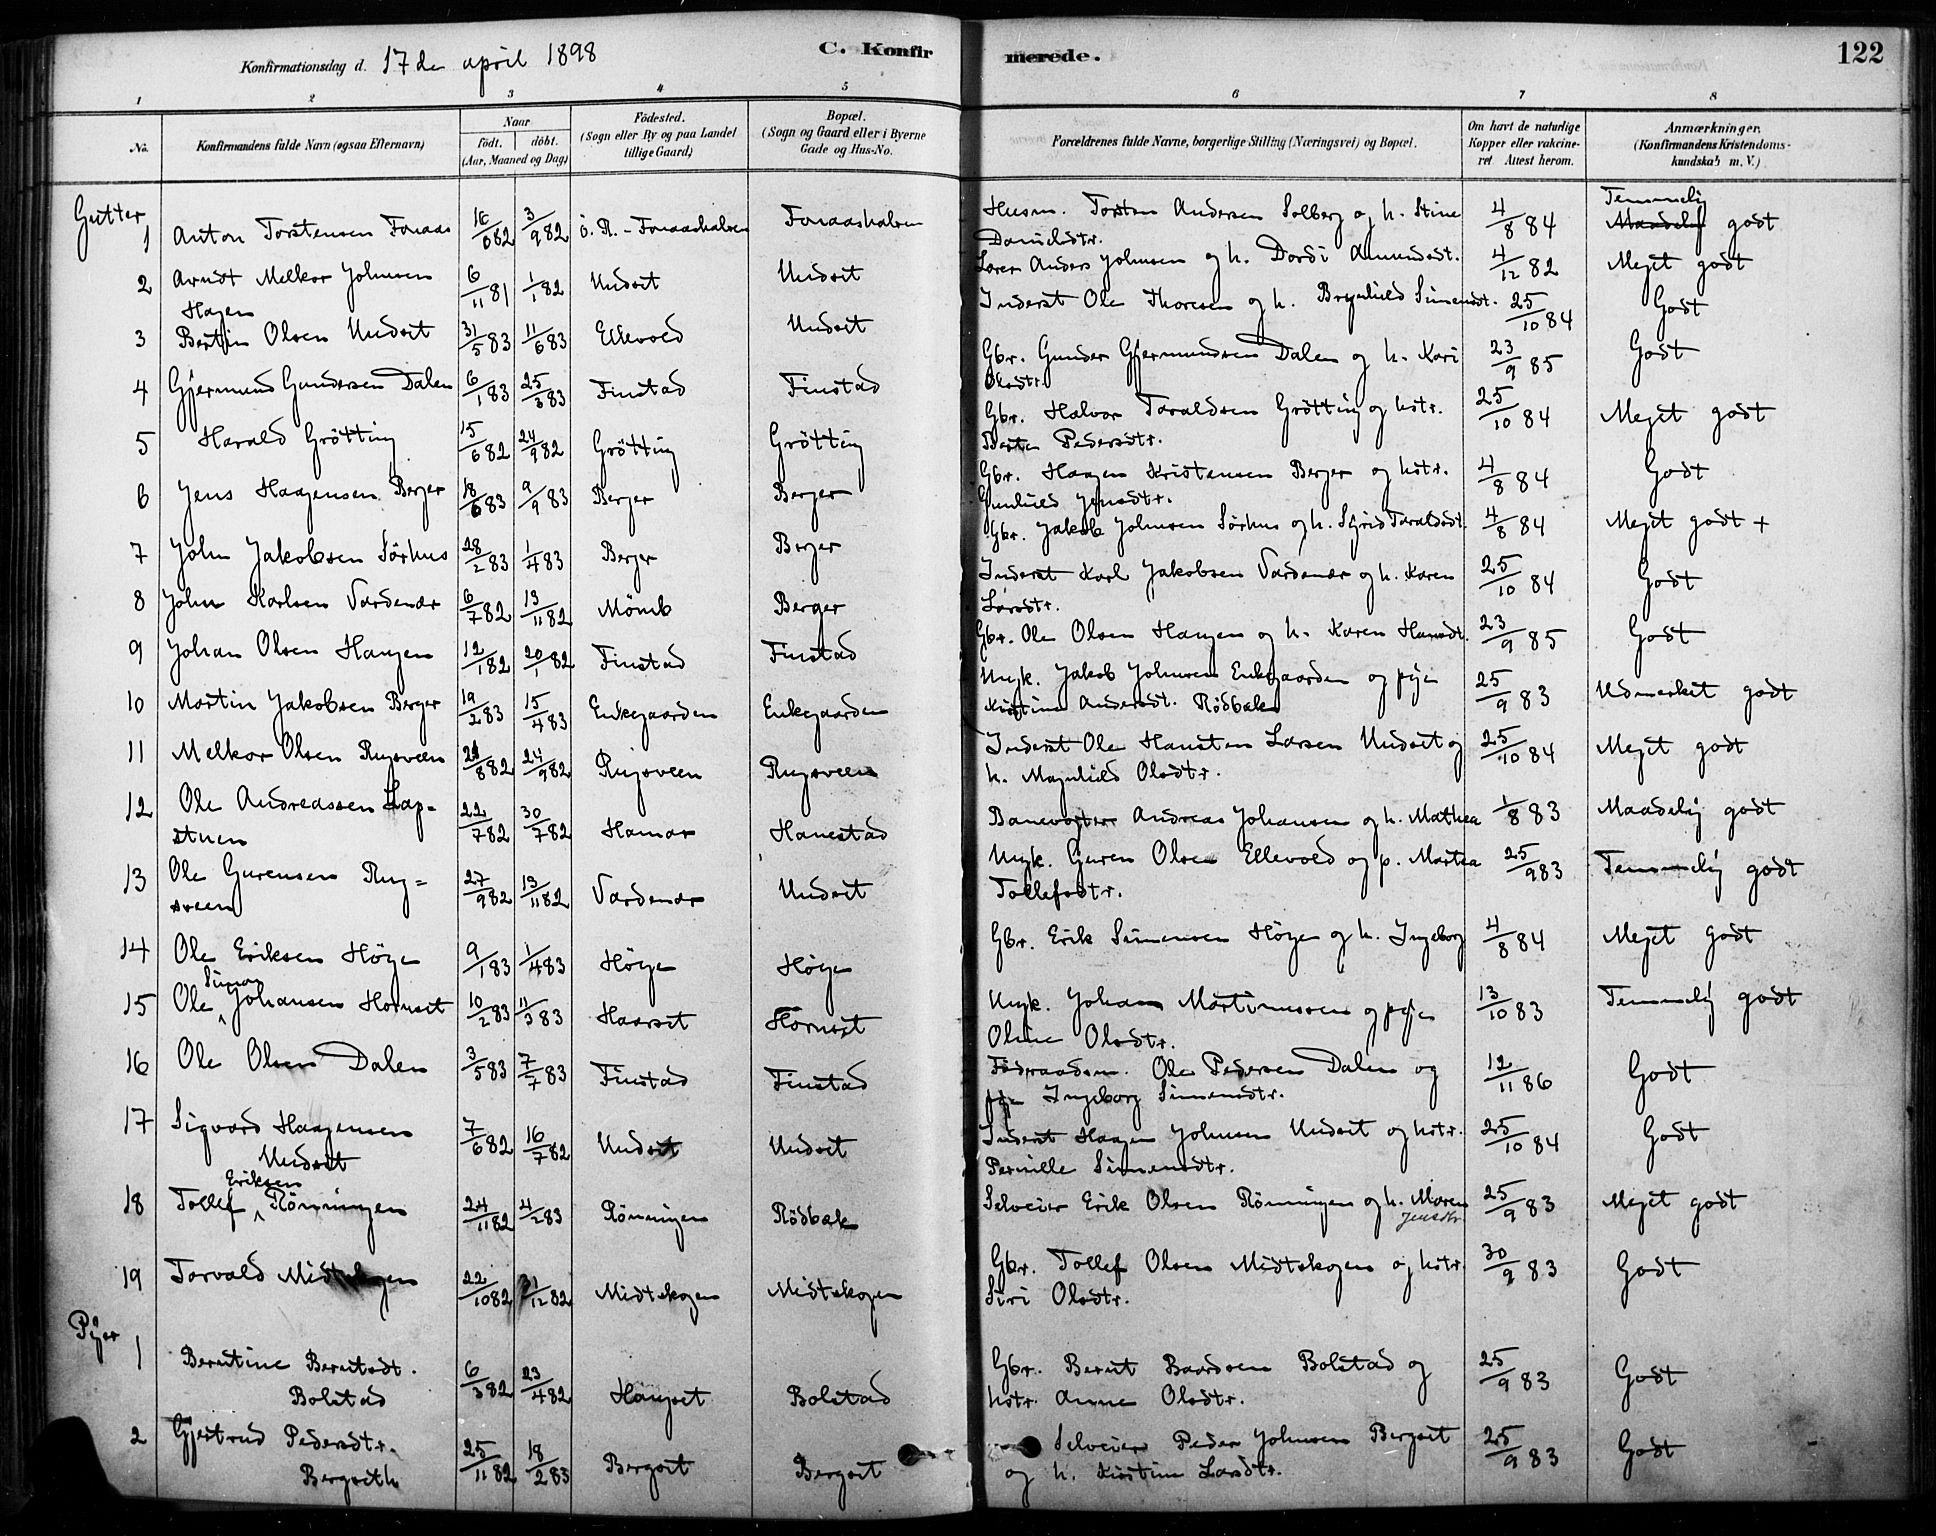 C. Konfirmerede.
122
Konfirmationsdag d. 17de april 1898
1 2 3 4 5 6 7 8
No.
Konfirmandens fulde Navn (ogsaa Efternavn)
Naar
født. døbt.
(Aar, Maaned og Dag)
Fødested.
(Sogn eller By og paa Landet
tillige Gaard)
Bopæl.
(Sogn og Gaard eller i Byerne
Gade og Hus-No.
Forældrenes fulde Navne, borgerlige Stilling (Næringsvei) og Bopæl.
Om havt de naturlige
Kopper eller vakcine-
ret. Attest herom.
Anmærkninger.
(Konfirmandens Kristendoms-
kundskab m. V.)
Gutter
1 Anton Torstensen Fonaas 16/6 82 3/9 82 Ö. R. - Fonaashalsen Fonaashalsen Husm. Torsten Andersen Solberg og h. Stine 4/8 84 Temmelig godt
Danielsdtr.
2 Arndt Melkor Johnsen 6/11 81 1/1 82 Undset Undset Lærer Anders Johnsen og h. Dordi Amundsdt. 4/12 82 Meget godt
Hagen
3 Bertin Olsen Undset 31/5 83 11/6 83 Ellevold Undset Inderst Ole Thoresen og h. Brynhild Simensdt. 25/10 84 Godt
4 Gjermund Gundersen Dalen 6/1 83 25/3 83 Finstad Finstad Gbr. Gunder Gjermundsen Dalen og h. Kari 23/9 85 Godt
Olsdtr.
5 Harald Grötting 15/6 82 24/9 82 Grötting Grötting Gbr. Halvor Taraldsen Grötting og hstr. 25/10 84 Meget godt
Berte Pedersdtr.
6 Jens Haagensen Berger 18/6 83 9/9 83 Berger Berger Gbr. Haagen Kristensen Berger og hstr. 4/8 84 Godt
Gunhild Jensdtr.
7 John Jakobsen Sörhus 28/2 83 1/4 83 Berger Berger Gbr. Jakob Johnsen Sörhus og h. Sigrid Taraldsdt. 4/8 84 Meget godt +
8 John Karlsen Vardenær 6/7 82 13/11 82 Mömb Berger Inderst Karl Jakobsen Vardenær og h. Karen 25/10 84 Godt
Larsdtr.
9 Johan Olsen Haugen 12/1 82 20/1 82 Finstad Finstad Gbr. Ole Olsen Haugen og h. Karen Hansdt. 23/9 85 Godt
10 Martin Jakobsen Berger 19/2 83 15/4 83 Enkegaarden Enkegaarden Ungk. Jakob Johnsen Enkegaarden og pige 25/9 83 Udmerket godt
Kristine Andersdt. Rödbæk
11 Melkor Olsen Rugsveen 21/8 82 24/9 82 Rugsveen Rugsveen Inderst Ole Hansten Larsen Undset og 25/10 84 Meget godt
h. Magnhild Olsdtr.
12 Ole Andreassen Lap- 22/7 82 30/7 82 Hamar Hanestad Banevogter Andreas Johansen og h. Mathea 1/8 83 Maadelig godt
stuen
13 Ole Gurensen Rug- 27/9 82 13/11 82 Vardenær Undset Ungk. Guren Olsen Ellevold og p. Martea 25/9 83 Temmelig godt
sveen Tollefsdtr.
14 Ole Eriksen Höye 9/1 83 1/4 83 Höye Höye Gbr. Erik Simensen Höye og h. Ingeborg 4/8 84 Meget godt
15 Ole Simon Johansen Hornset 10/2 83 11/3 83 Haarset Hornset Ungk. Johan Martinussen og pige 13/10 83 Temmelig godt
Oline Olsdtr.
16 Ole Olsen Dalen 3/5 83 7/7 83 Finstad Finstad Föderaadsm. Ole Pedersen Dalen og 12/11 86 Godt
pige Ingeborg Simensdtr.
17 Sigvard Haagensen 7/6 82 16/7 82 Undset Undset Inderst Haagen Johnsen Undset og hstr. 25/10 84 Godt
Undset Pernille Simensdtr.
18 Tollef Eriksen Rönningen 24/11 82 4/2 83 Rönningen Rödbæk Selveier Erik Olsen Rönningen og h. Maren 25/9 83 Meget godt
Jensdtr.
19 Torvald Midtskogen 22/10 82 31/12 82 Midtskogen Midtskogen Gbr. Tollef Olsen Midtskogen og hstr. 30/9 83 Godt
Siri Olsdtr.
Piger
1 Berntine Berntsdt. 6/3 82 23/4 82 Haugset Bolstad Gbr. Bernt Baardsen Bolstad og 25/9 83 Godt
Bolstad hstr. Anne Olsdtr.
2 Gjertrud Pedersdtr. 25/11 82 18/2 83 Bergset Bergset Selveier Peder Johnsen Bergset 25/9 83 Godt
Bergseth og h. Kirstine Larsdtr.